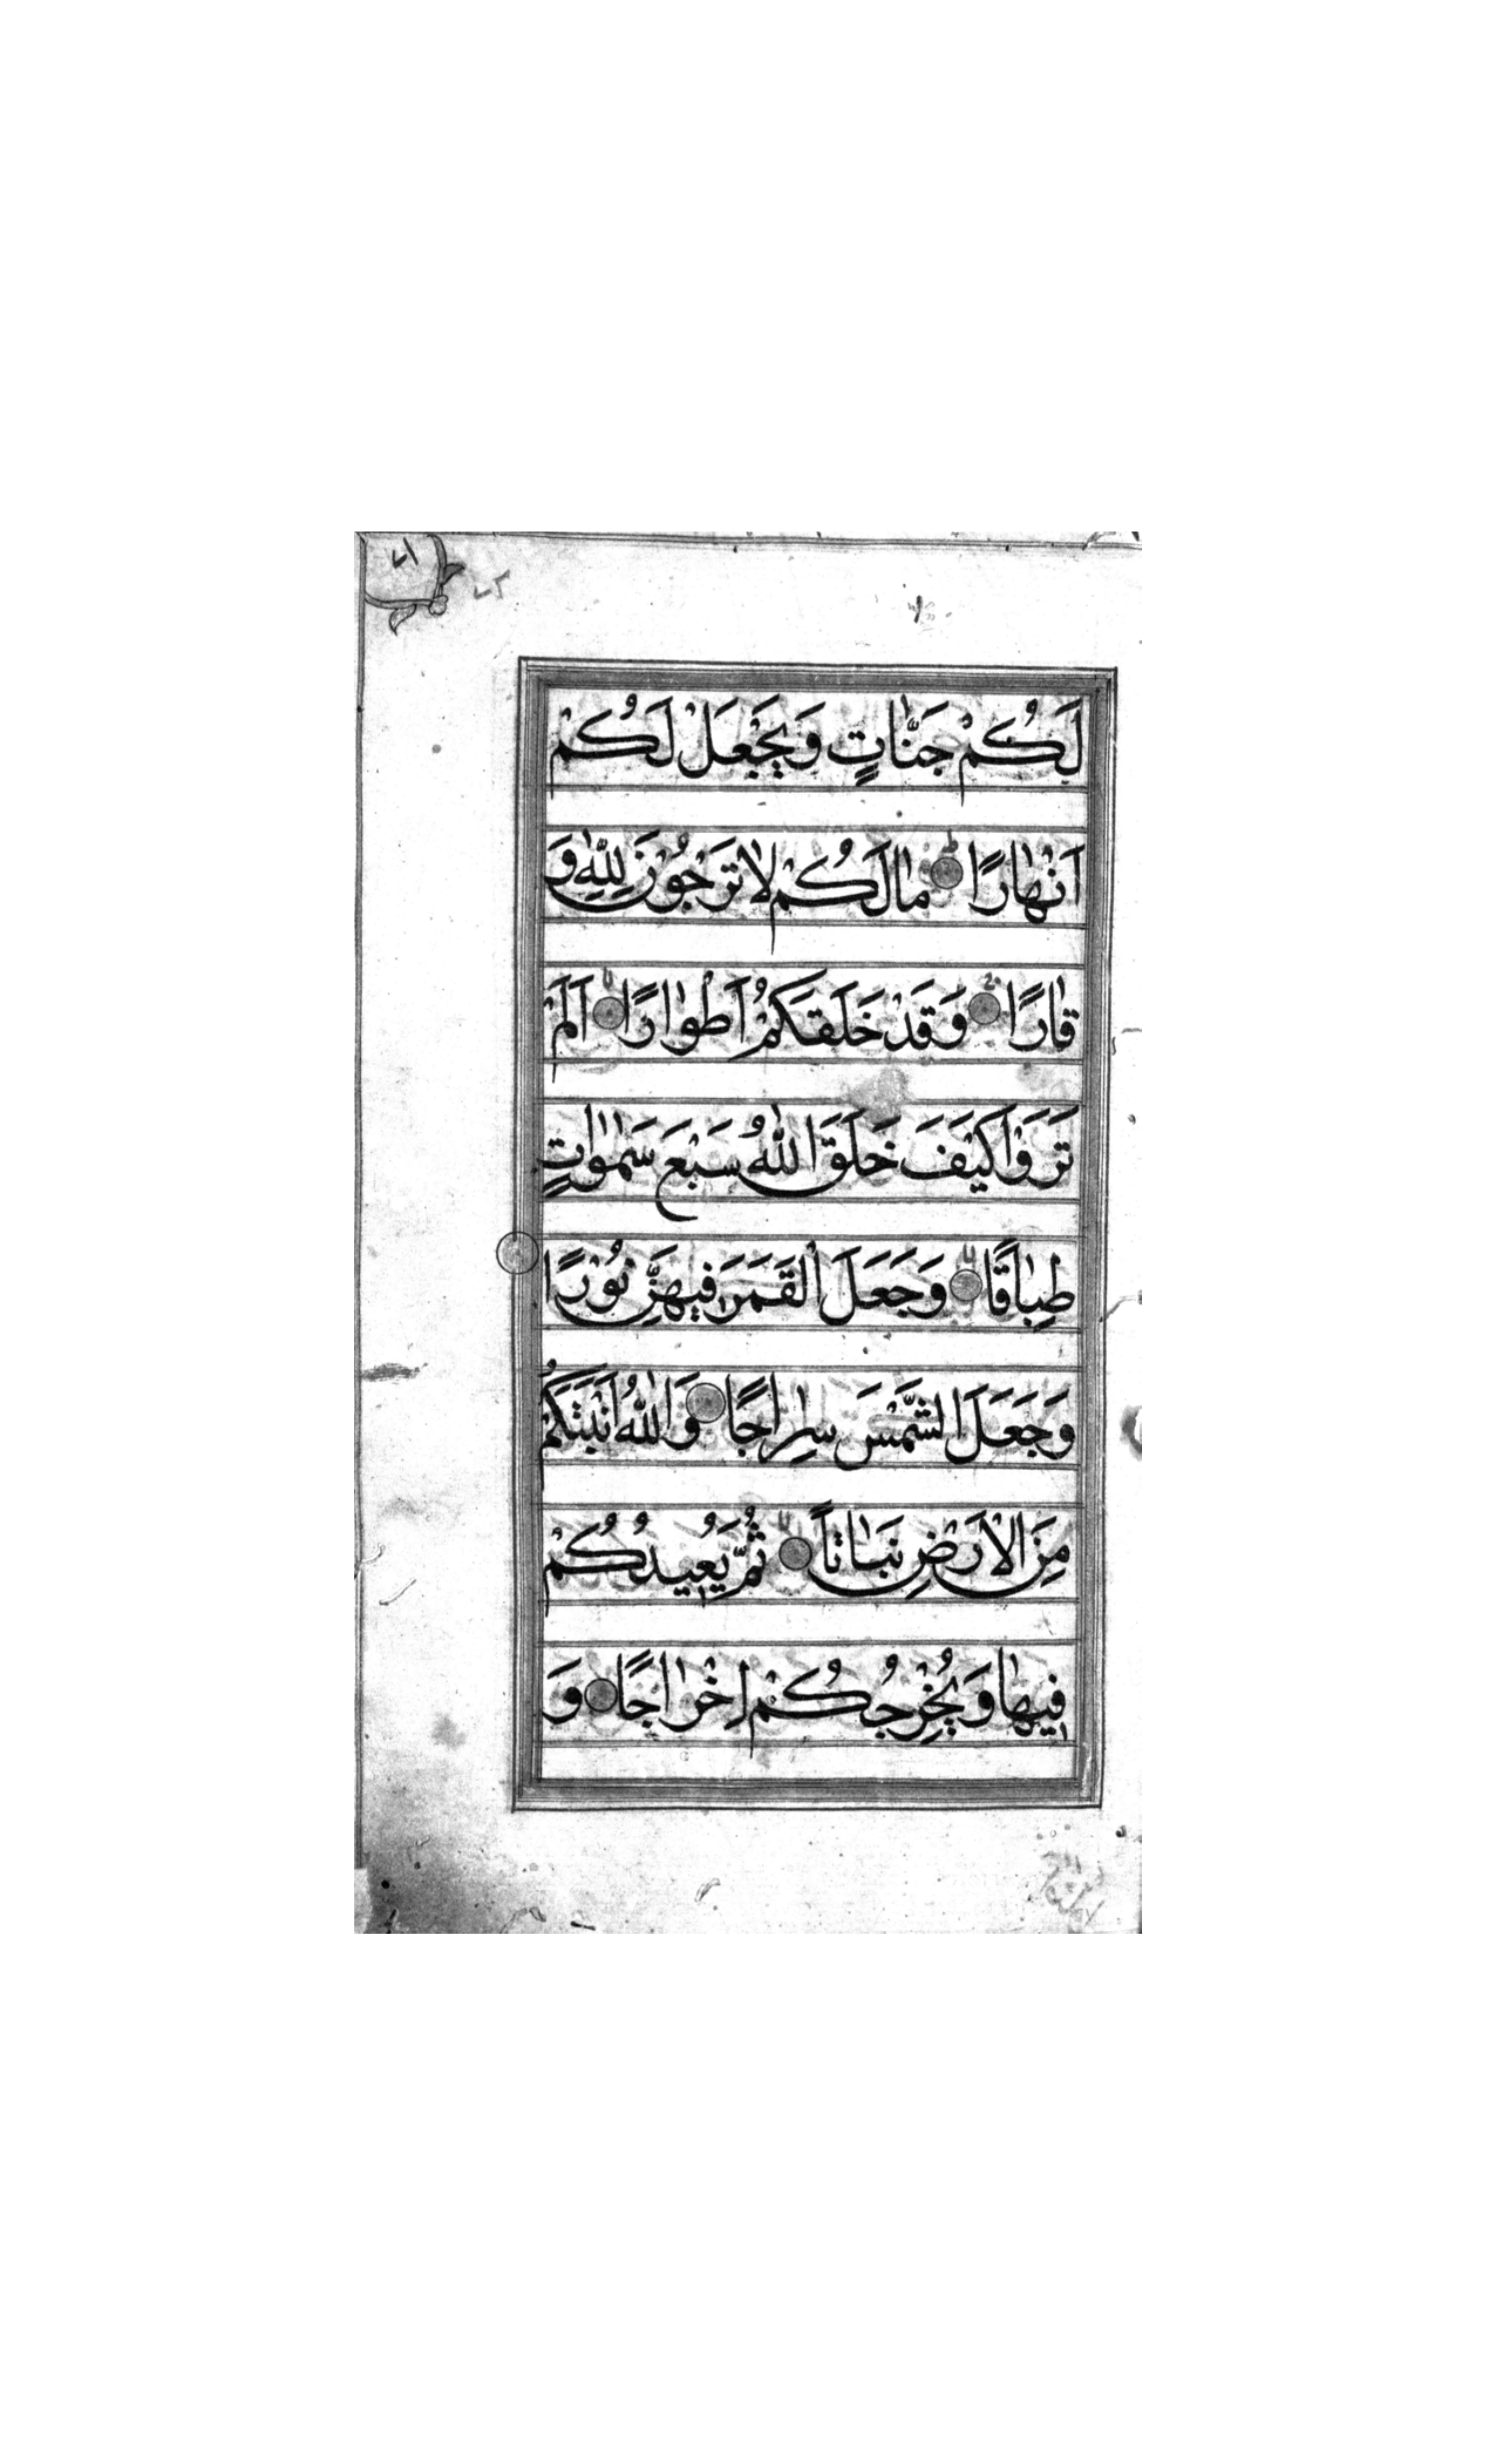 لَكُمْ جَنَّاتٍ وَيَجْعَلْ لَكُمْ
اَنْهٰارًا مٰالَكُمْ لاٰ تَرْجُوْنَ لِلّٰهِ وَ
قٰارًا وَقَدْ خَلَقَكُمْ اَطْوٰارًا اَلَمْ
تَرَوْا كَيْفَ خَلَقَ اللّٰهُ سَبْعَ سَمٰوٰاتٍ
طِبٰاقًا وَجَعَلَ الْقَمَرَ فِيهِنَّ نُوْرًا
وَجَعَلَ الشَّمْسَ سِرٰاجًا وَاللّٰهُ اَنْبَتَكُمْ
مِنَ الْاَرْضِ نَبٰاتاً ثُمَّ يُعِيدُكُمْ
فِيهٰا وَيُخْرِجُكُمْ اِخْرٰاجًا وَ